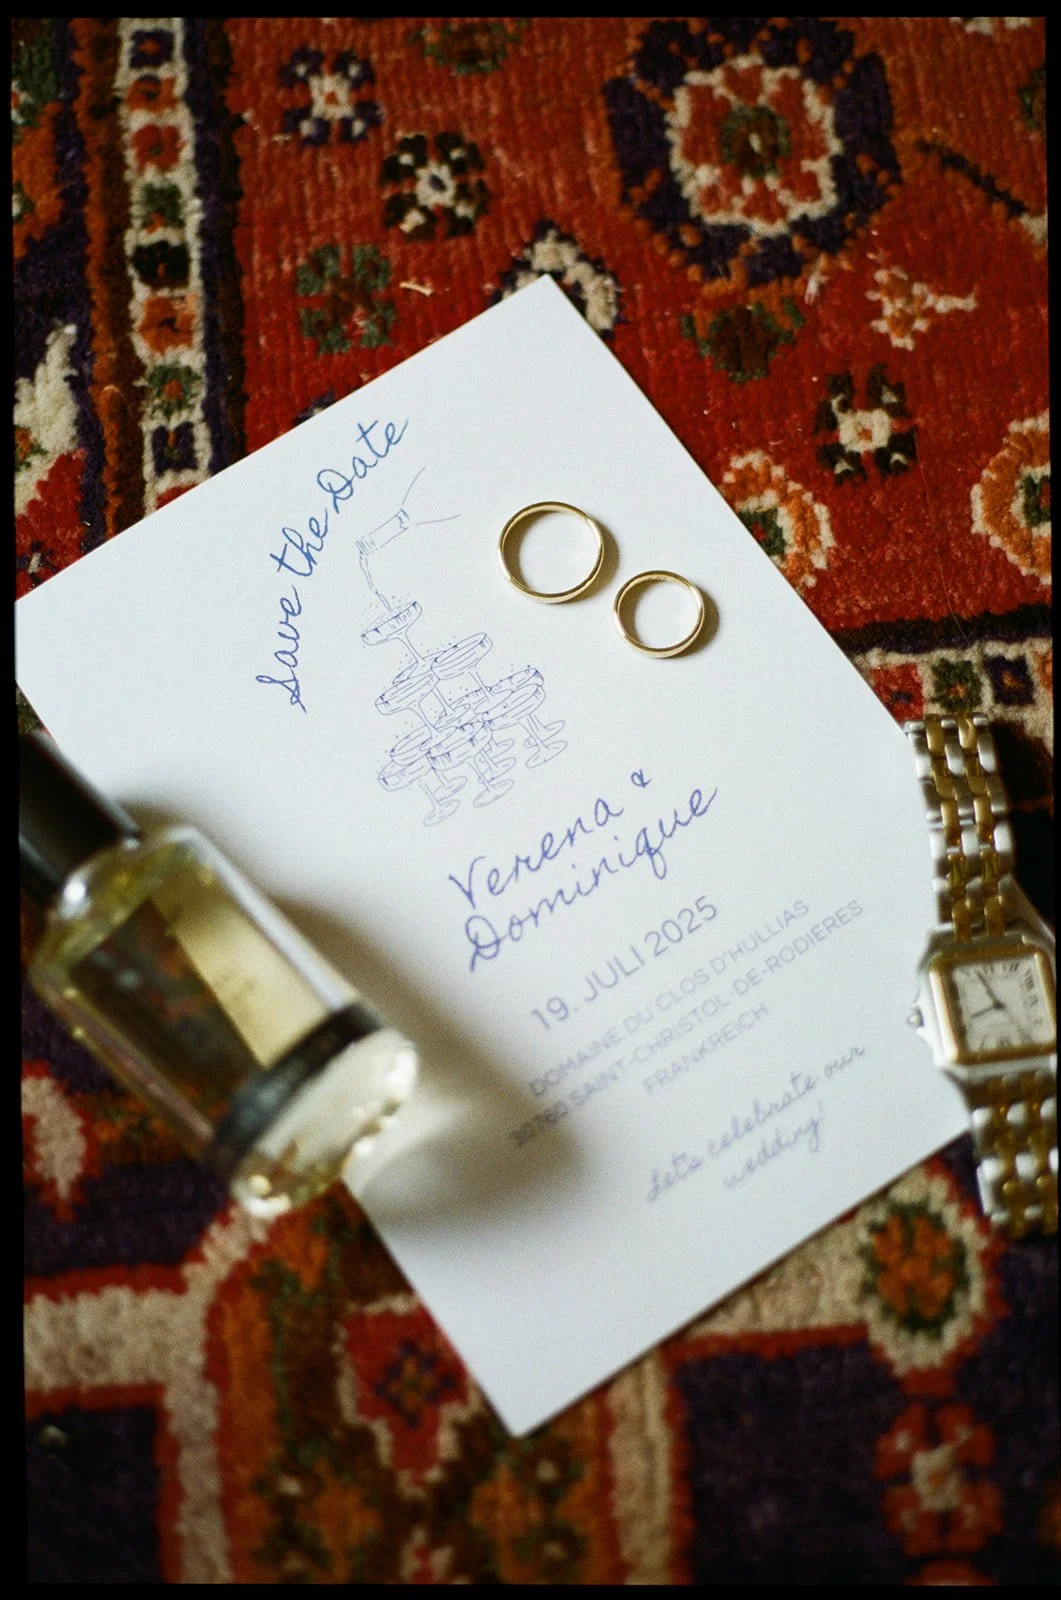 Save the Date
Verena &
Dominique
19. JULI 2025
DOMAINE DU CLOS D'HULLIAS
30760 SAINT-CHRISTOL-DE-RODIERES
FRANKREICH
Let's celebrate our
wedding